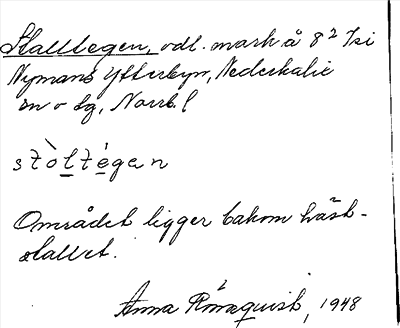 Stalltegen, odl. mark å 8² Isi
Nymans Ytterbyn, Nederkalix
sn o sg, Norrb. l
stòltégan
Området ligger bakom häst-
stallet.
Anna Rönnquist, 1948